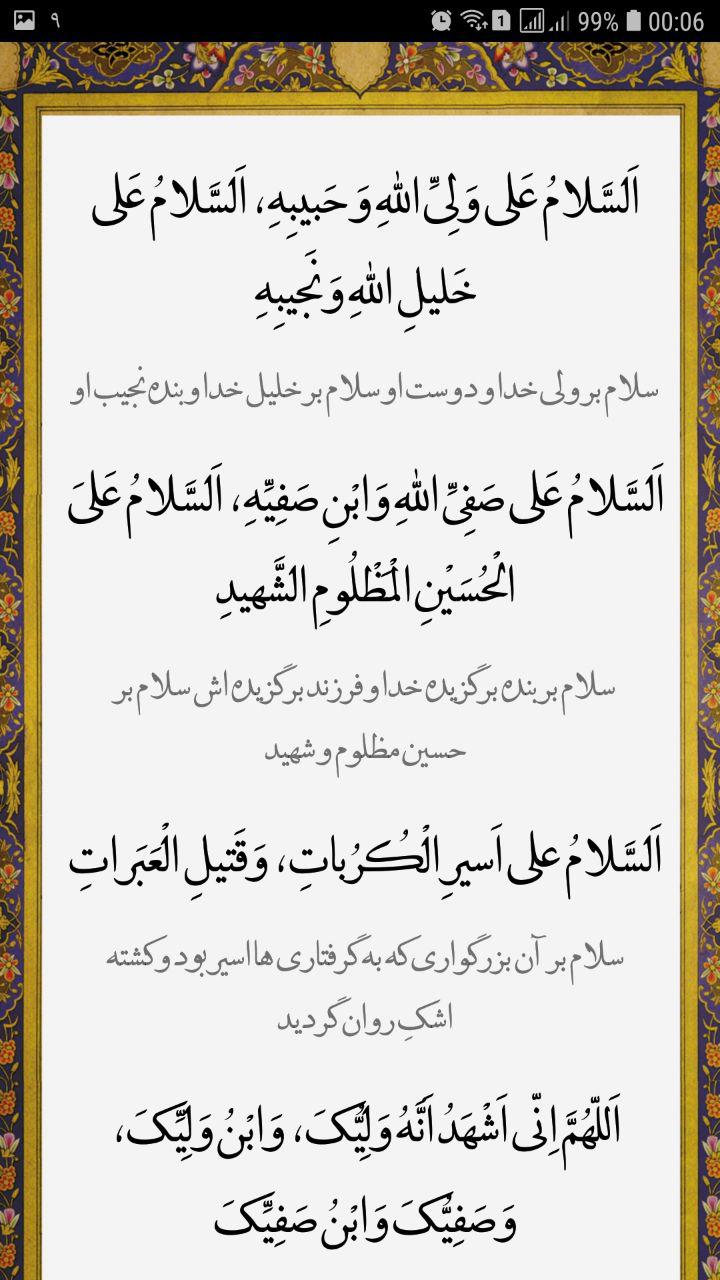 ۹ 1 99% 00:06
اَلسَّلامُ عَلى وَلِىِّ اللهِ وَ حَبيبِهِ، اَلسَّلامُ عَلى
خَليلِ اللهِ وَ نَجيبِهِ
سلام بر ولی خدا و دوست او سلام بر خلیل خدا و بنده نجیب او
اَلسَّلامُ عَلى صَفِىِّ اللهِ وَابْنِ صَفِيِّهِ، اَلسَّلامُ عَلىَ
الْحُسَيْنِ الْمَظْلُومِ الشَّهيدِ
سلام بر بنده برگزیده خدا و فرزند برگزیده اش سلام بر
حسین مظلوم و شهید
اَلسَّلامُ على اَسيرِ الْكُرُباتِ، وَ قَتيلِ الْعَبَراتِ
سلام بر آن بزرگواری که به گرفتاری ها اسیر بود و کشته
اشکِ روان گردید
اَللّهُمَّ اِنّى اَشْهَدُ اَنَّهُ وَلِيُّکَ، وَابْنُ وَلِيِّکَ،
وَ صَفِيُّکَ وَابْنُ صَفِيِّکَ